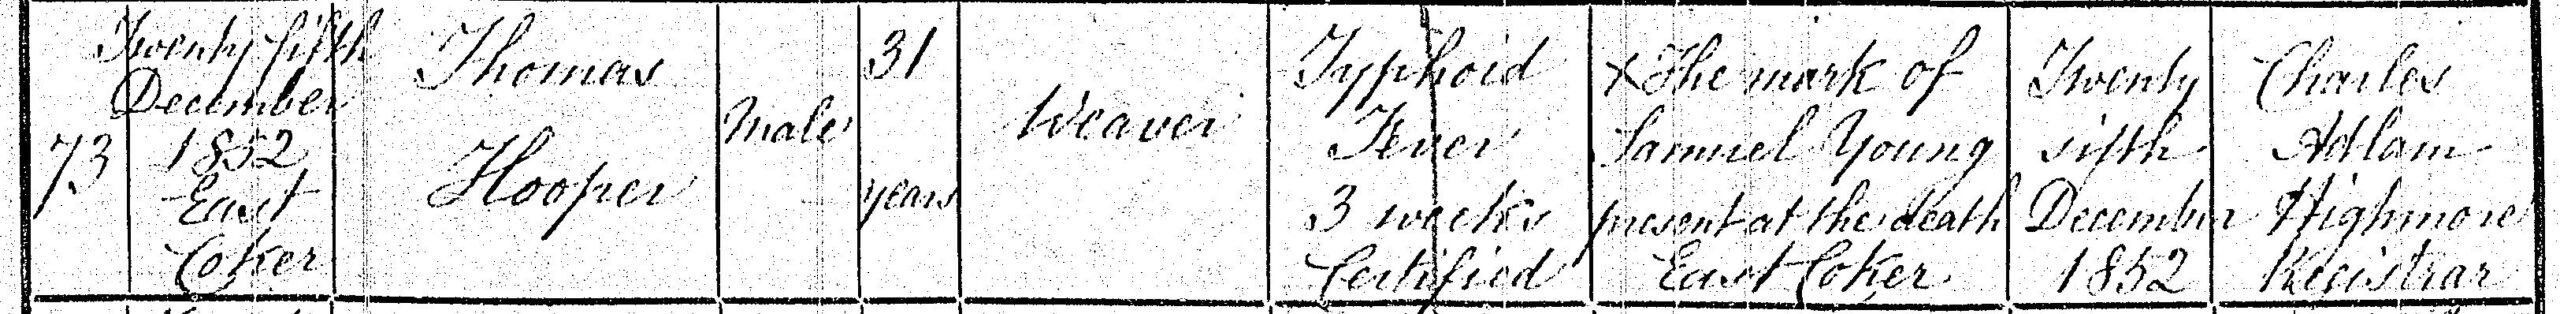 73
Twenty fifth
December
1852
East
Coker
Thomas
Hooper
Male
31
years
Weaver
Typhoid
Fever
3 weeks
Certified
X The mark of
Samuel Young
present at the death
East Coker
Twenty
fifth
December
1852
Charles
Adlam
Highmore
Registrar